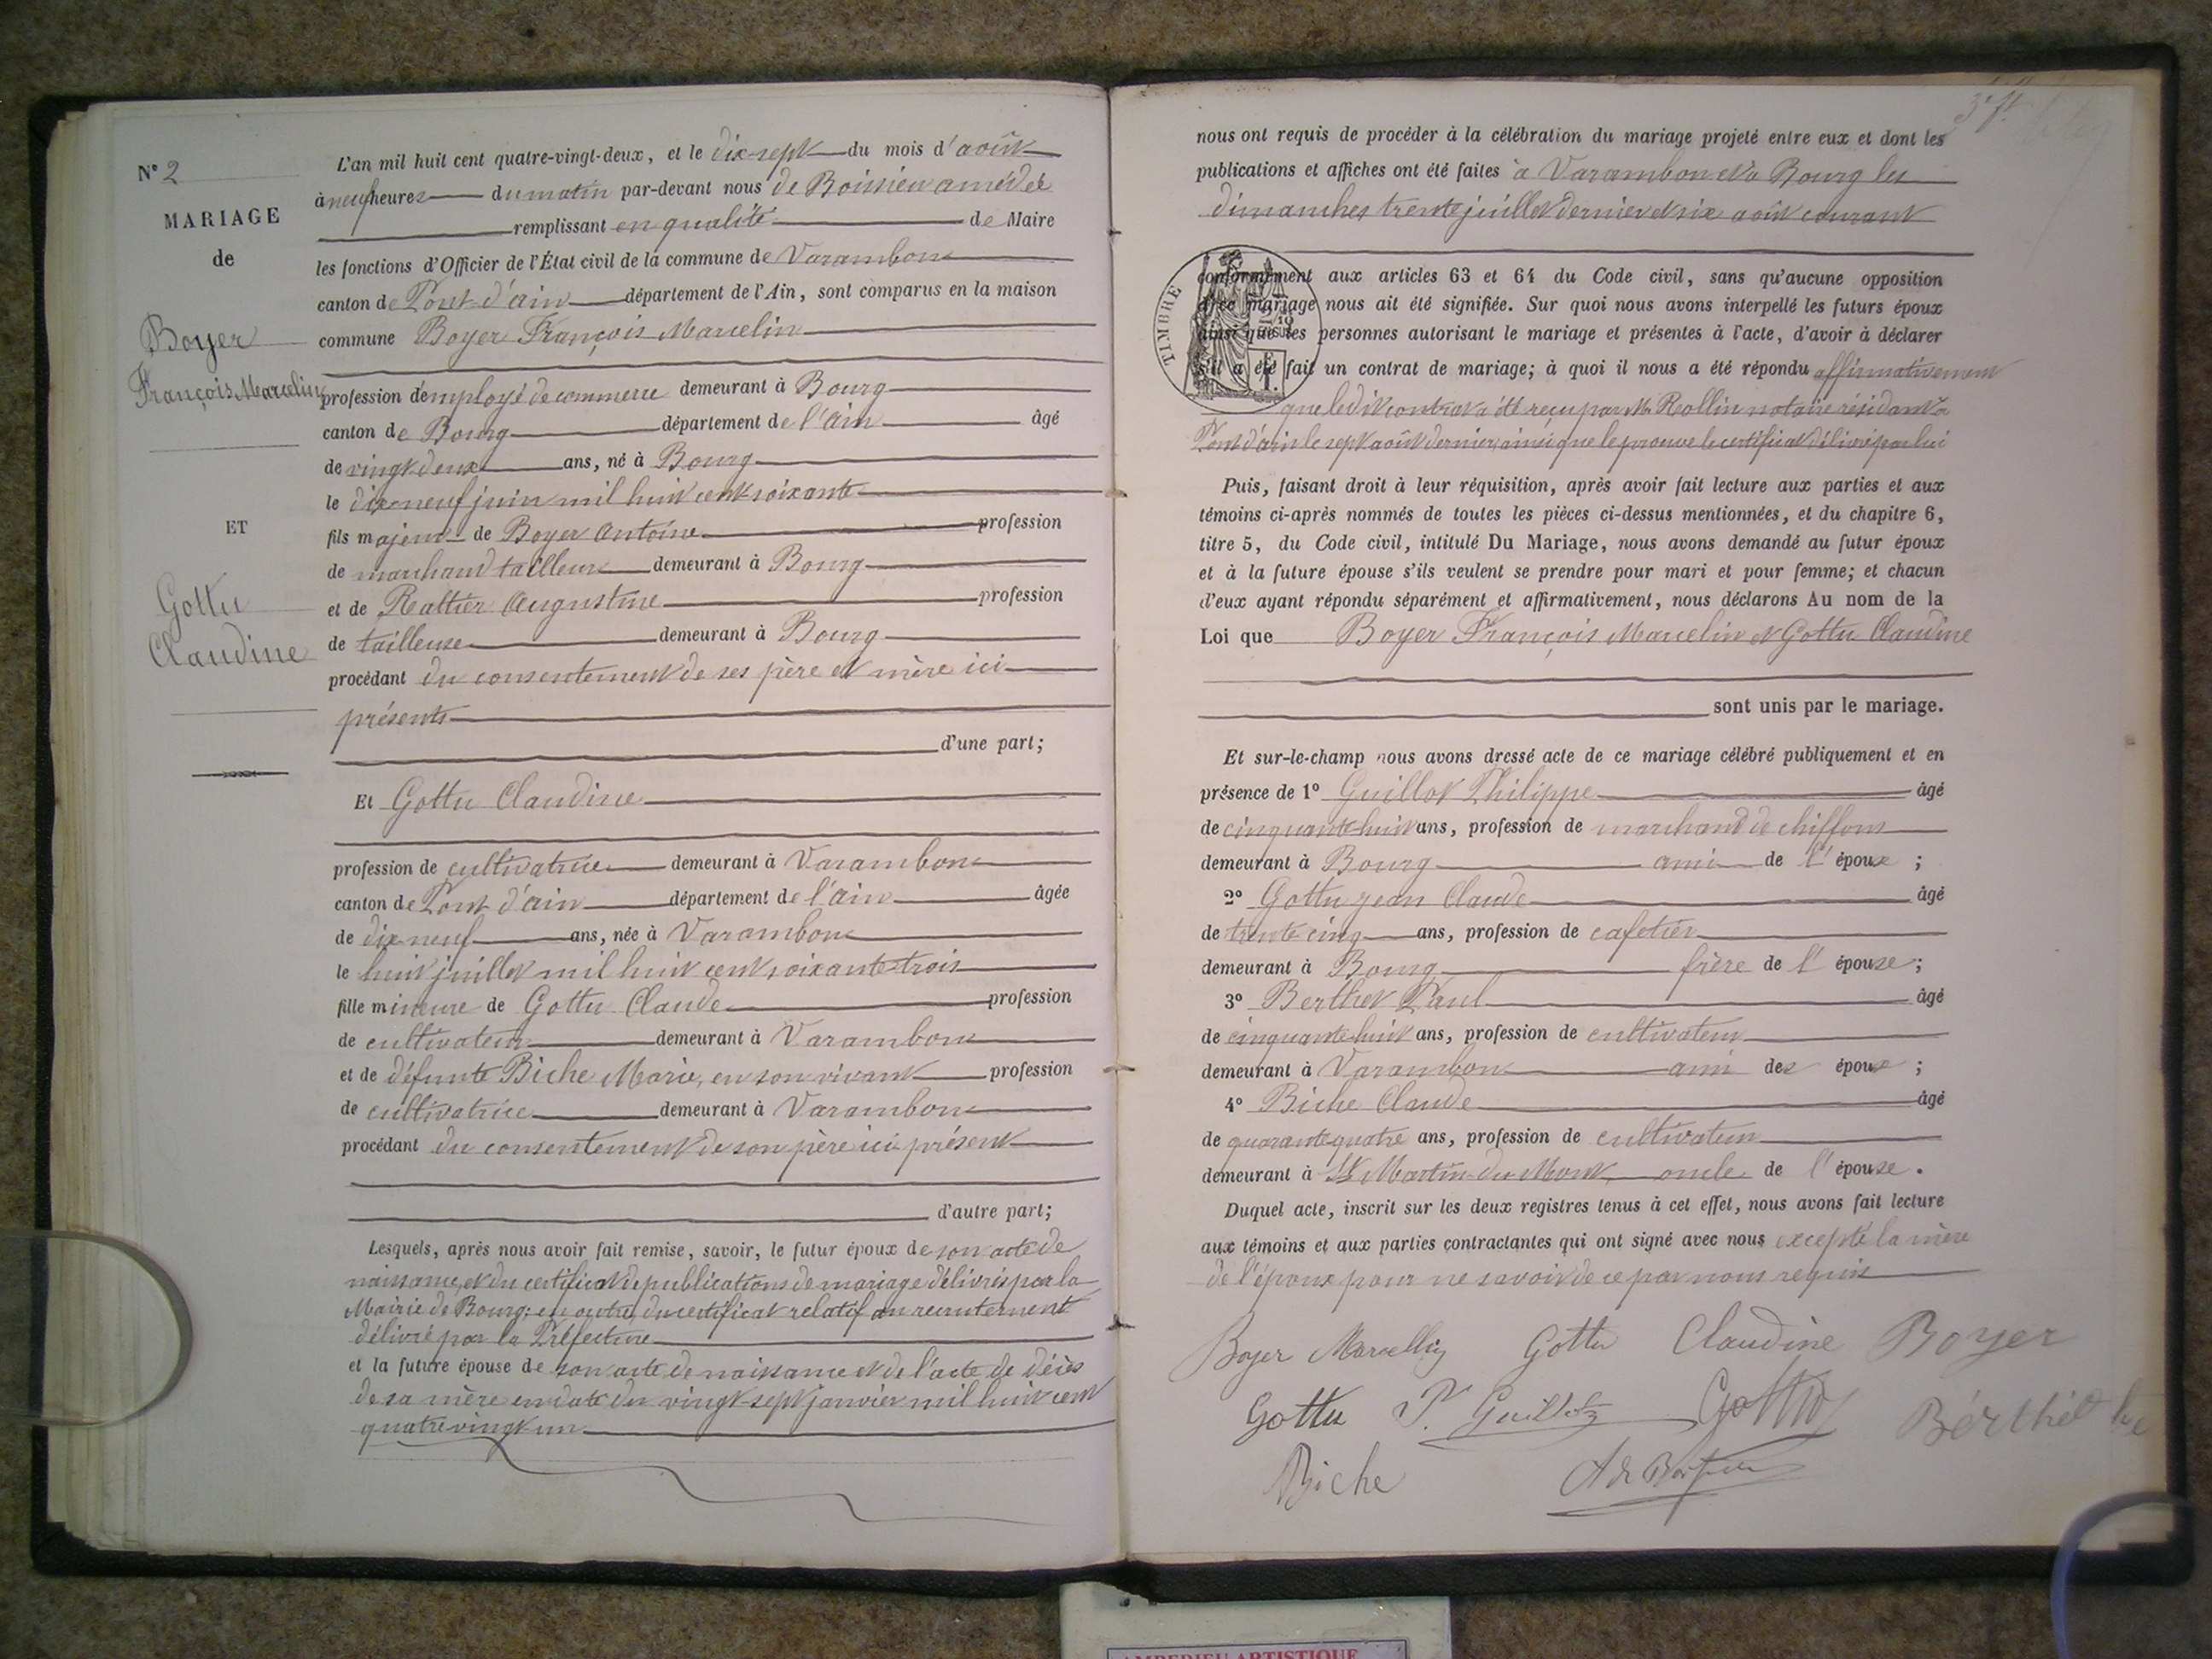 N° 2
MARIAGE
de
Boyer
François Marcelin
ET
Gottu
Claudine
L'an mil huit cent quatre-vingt-deux, et le dix-sept du mois d'août
à neuf heures du matin par-devant nous de Boissieu amédée
remplissant en qualité de Maire
les fonctions d'Officier de l'État civil de la commune de Varambon
canton de Pont-d'ain département de l'Ain, sont comparus en la maison
commune Boyer François Marcelin
profession d'employé de commerce demeurant à Bourg
canton de Bourg département de l'ain âgé
de vingt deux ans, né à Bourg
le dix-neuf juin mil huit cent soixante
fils majeur de Boyer Antoine profession
de marchand tailleur demeurant à Bourg
et de Realtier Augustine profession
de tailleuse demeurant à Bourg
procédant du consentement de ses père et mère ici
présents
d'une part;
Et Gottu Claudine
profession de cultivatrice demeurant à Varambon
canton de Pont d'ain département de l'ain âgée
de dix-neuf ans, née à Varambon
le huit juillet mil huit cent soixante-trois
fille mineure de Gottu Claude profession
de cultivateur demeurant à Varambon
et de défunte Biche Marie, en son vivant profession
de cultivatrice demeurant à Varambon
procédant du consentement de son père ici présent
d'autre part;
Lesquels, après nous avoir fait remise, savoir, le futur époux de son acte de
naissance, et du certificat de publications de mariage délivrés par la
Mairie de Bourg; en outre, du certificat relatif au recrutement
délivré par la Préfecture
et la future épouse de son acte de naissance et de l'acte de décès
de sa mère en date du vingt-sept janvier mil huit cent
quatre vingt un
nous ont requis de procéder à la célébration du mariage projeté entre eux et dont les
publications et affiches ont été faites à Varambon et à Bourg les
dimanches trente juillet dernier et six août courant
TIMBRE
conformément aux articles 63 et 64 du Code civil, sans qu'aucune opposition
mariage nous ait été signifiée. Sur quoi nous avons interpellé les futurs époux
ainsi que les personnes autorisant le mariage et présentes à l'acte, d'avoir à déclarer
s'il a été fait un contrat de mariage; à quoi il nous a été répondu affirmativement
que ledit contrat a été reçu par Me Rollin notaire résidant à
Pont d'ain le sept août dernier, ainsi que le prouve le certificat délivré par lui
Puis, faisant droit à leur réquisition, après avoir fait lecture aux parties et aux
témoins ci-après nommés de toutes les pièces ci-dessus mentionnées, et du chapitre 6,
titre 5, du Code civil, intitulé Du Mariage, nous avons demandé au futur époux
et à la future épouse s'ils veulent se prendre pour mari et pour femme; et chacun
d'eux ayant répondu séparément et affirmativement, nous déclarons Au nom de la
Loi que Boyer François Marcelin et Gottu Claudine
sont unis par le mariage.
Et sur-le-champ nous avons dressé acte de ce mariage célébré publiquement et en
présence de 1° Guillot Philippe âgé
de cinquante-huit ans, profession de marchand de chiffons
demeurant à Bourg ami de l'épouse ;
2° Gottu jean Claude âgé
de trente cinq ans, profession de cafetier
demeurant à Bourg frère de l'épouse ;
3° Berthet Paul âgé
de cinquante-huit ans, profession de cultivateur
demeurant à Varambon ami des épouse ;
4° Biche Claude âgé
de quarante quatre ans, profession de cultivateur
demeurant à St Martin-du-Mont oncle de l'épouse.
Duquel acte, inscrit sur les deux registres tenus à cet effet, nous avons fait lecture
aux témoins et aux parties contractantes qui ont signé avec nous excepté la mère
de l'époux pour ne savoir de ce par nous requis
Boyer Marcellin Gottu Claudine Boyer
Gottu P. Guillot Gottu Bérthet
Biche A de Boissieu
AMBERIEU ARTISTIQUE